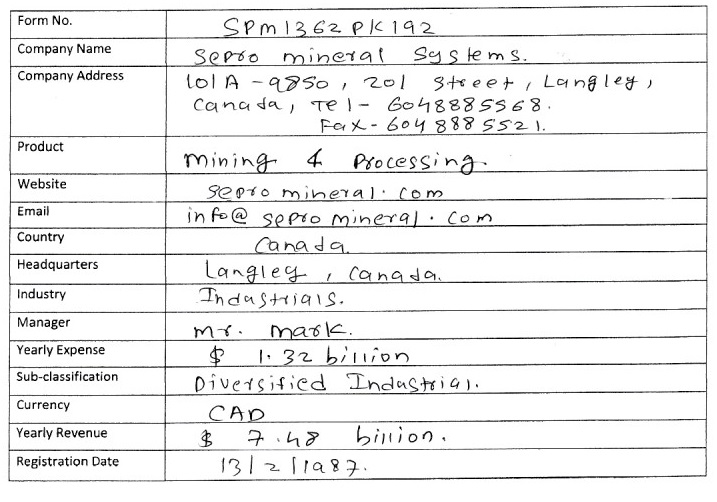 Form No. SPM1362PK192
Company Name Sepro mineral Systems.
Company Address 101A - 9850, 201 Street, Langley,
Canada, Tel - 6048885568.
Fax - 604 888 5521.
Product mining & processing.
Website sepro mineral. com
Email info@ sepro mineral. com
Country Canada.
Headquarters Langley, Canada.
Industry Industrials.
Manager mr. mark.
Yearly Expense $ 1.32 billion
Sub-classification Diversified Industrial.
Currency CAD
Yearly Revenue $ 7.48 billion.
Registration Date 13/2/1987.